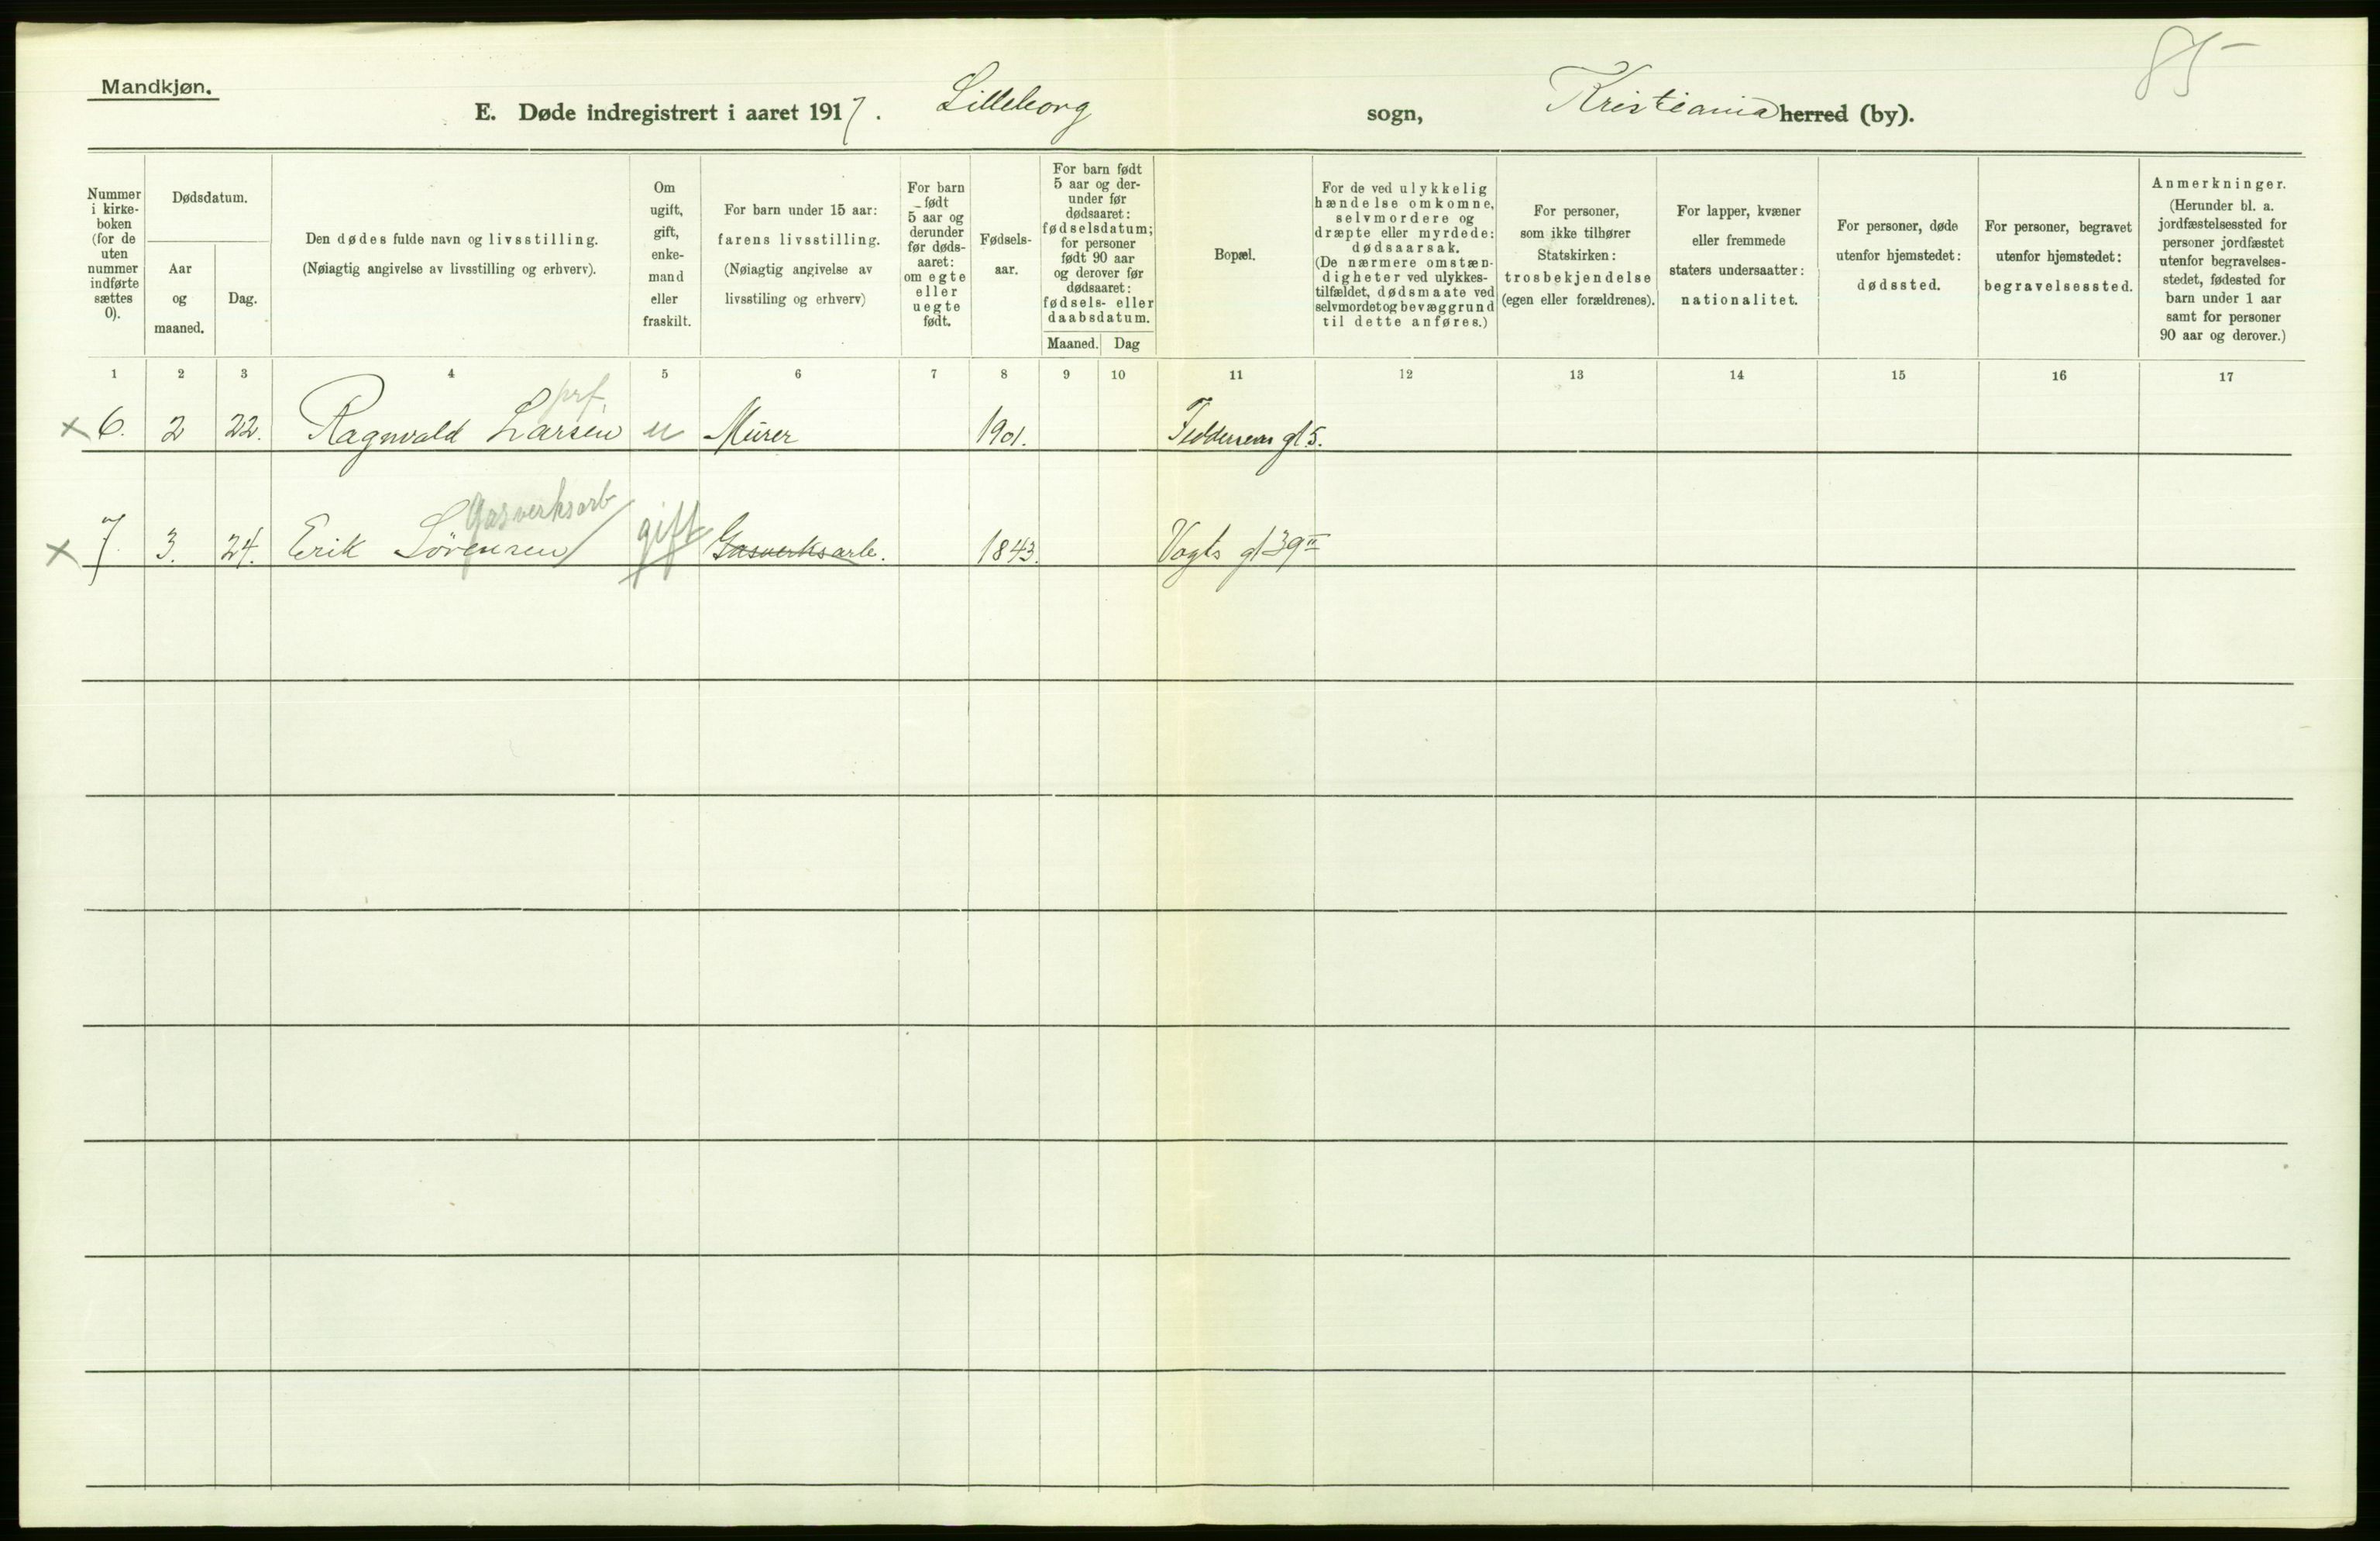 85
Mandkjøn.
E. Døde indregistrert i aaret 1917. Lilleborg sogn, Kristiania herred (by).
Nummer i kirke- boken (for de uten nummer indførte sættes 0).
Dødsdatum.
Aar og maaned.
Dag.
Den dødes fulde navn og livsstilling.
(Nøiagtig angivelse av livsstilling og erhverv).
Om ugift, gift, enke- mand eller fraskilt.
For barn under 15 aar: farens livsstilling. (Nøiagtig angivelse av livsstiling og erhverv)
For barn født 5 aar og derunder før døds- aaret: om egte eller uegte født.
Fødsels- aar.
For barn født 5 aar og der- under før dødsaaret: fødselsdatum; for personer født 90 aar og derover før dødsaaret: fødsels- eller daabsdatum.
Maaned. Dag
Bopæl.
For de ved ulykkelig hændelse omkomne, selvmordere og dræpte eller myrdede: dødsaarsak. (De nærmere omstæn- digheter ved ulykkes- tilfældet, dødsmaate ved selvmordet og bevæggrund til dette anføres.)
For personer, som ikke tilhører Statskirken: trosbekjendelse (egen eller forældrenes).
For lapper, kvæner eller fremmede staters undersaatter: nationalitet.
For personer, døde utenfor hjemstedet: dødssted.
For personer, begravet utenfor hjemstedet: begravelsessted.
Anmerkninger. (Herunder bl. a. jordfæstelsessted for personer jordfæstet utenfor begravelses- stedet, fødested for barn under 1 aar samt for personer 90 aar og derover.)
1 2 3 4 5 6 7 8 9 10 11 12 13 14 15 16 17
prf.
x 6. 2 22. Ragnvald Larsen u Murer 1901. Feddersens gt 5.
Gasverksarb
x 7. 3. 24. Erik Sörensen gift Gasverksarb. 1843. Vogts gt 39 II